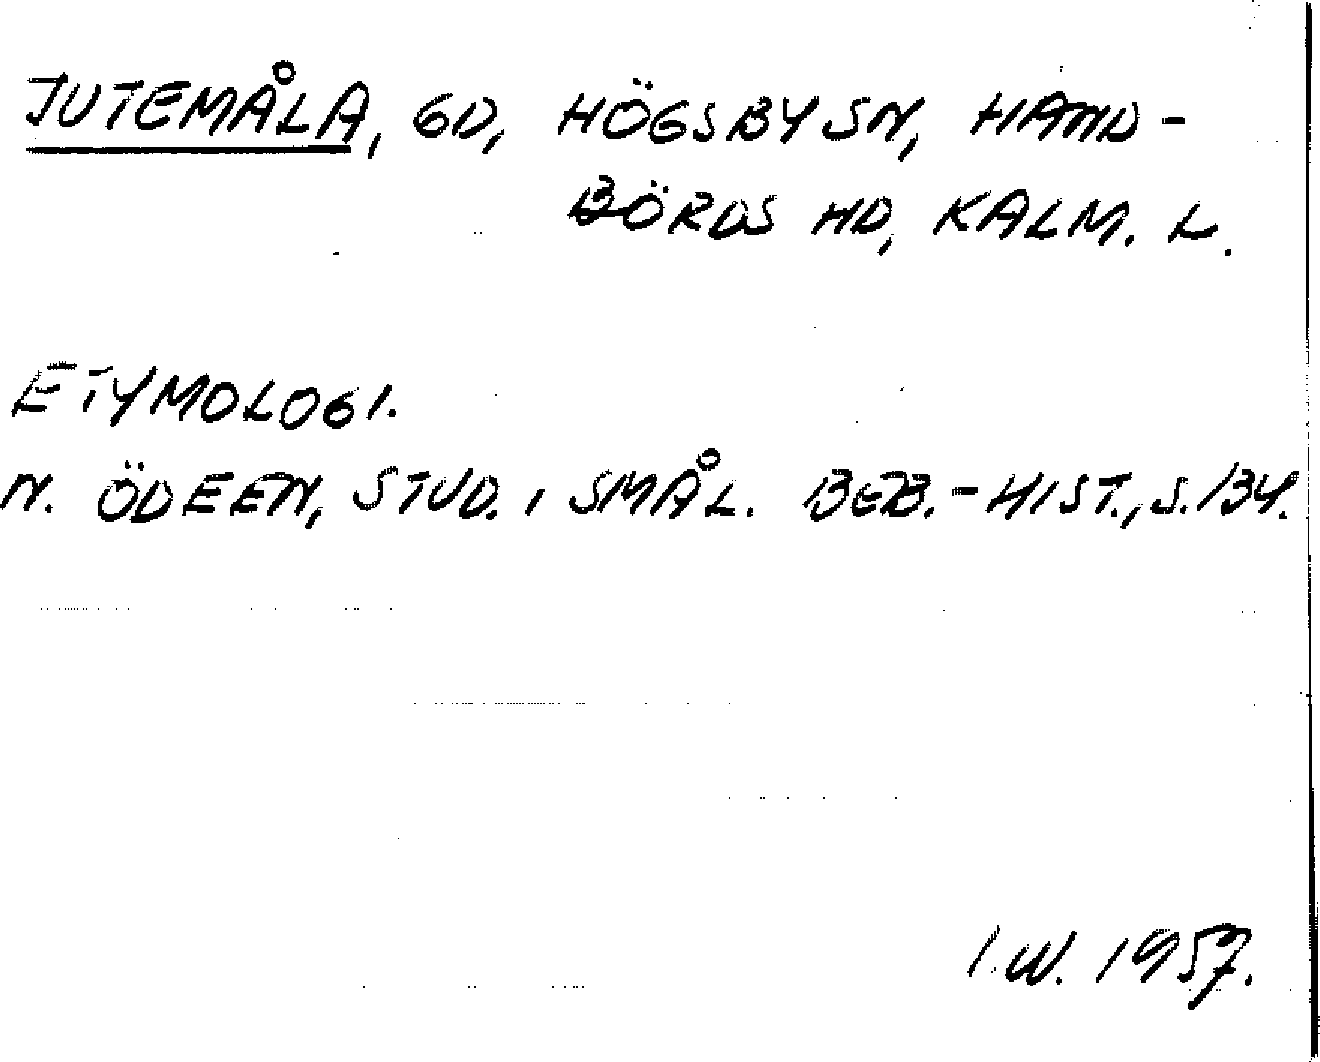 JUTEMÅLA, GD, HÖGSBY SN, HAND-
BÖRDS HD, KALM. L.
ETYMOLOGI.
N. ÖDEEN, STUD. I SMÅL. BEB.-HIST., S. 134.
I.W. 1957.